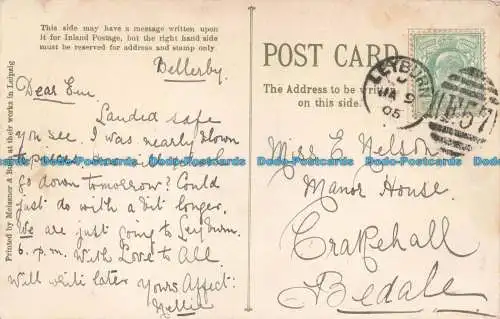 This side may have a message written upon
it for Inland Postage, but the right hand side
must be reserved for address and stamp only.
Bellerby.
Dear Em
Landed safe
you see. I was nearly blown
to pieces
go down tomorrow? Could
just do with a bit longer.
We are just going to Leyburn.
6. p.m. With Love to All
Will write later Yours Affect:
Nellie
Printed by Meissner & Buch at their works in Leipzig
POST CARD
The Address to be written
on this side.
LEYBURN
JA 9
05
Miss E Nelson
Manor House.
Crakehall
Bedale.
Dodo-Postcards Dodo-Postcards Dodo-Postcards Dodo-Postcards